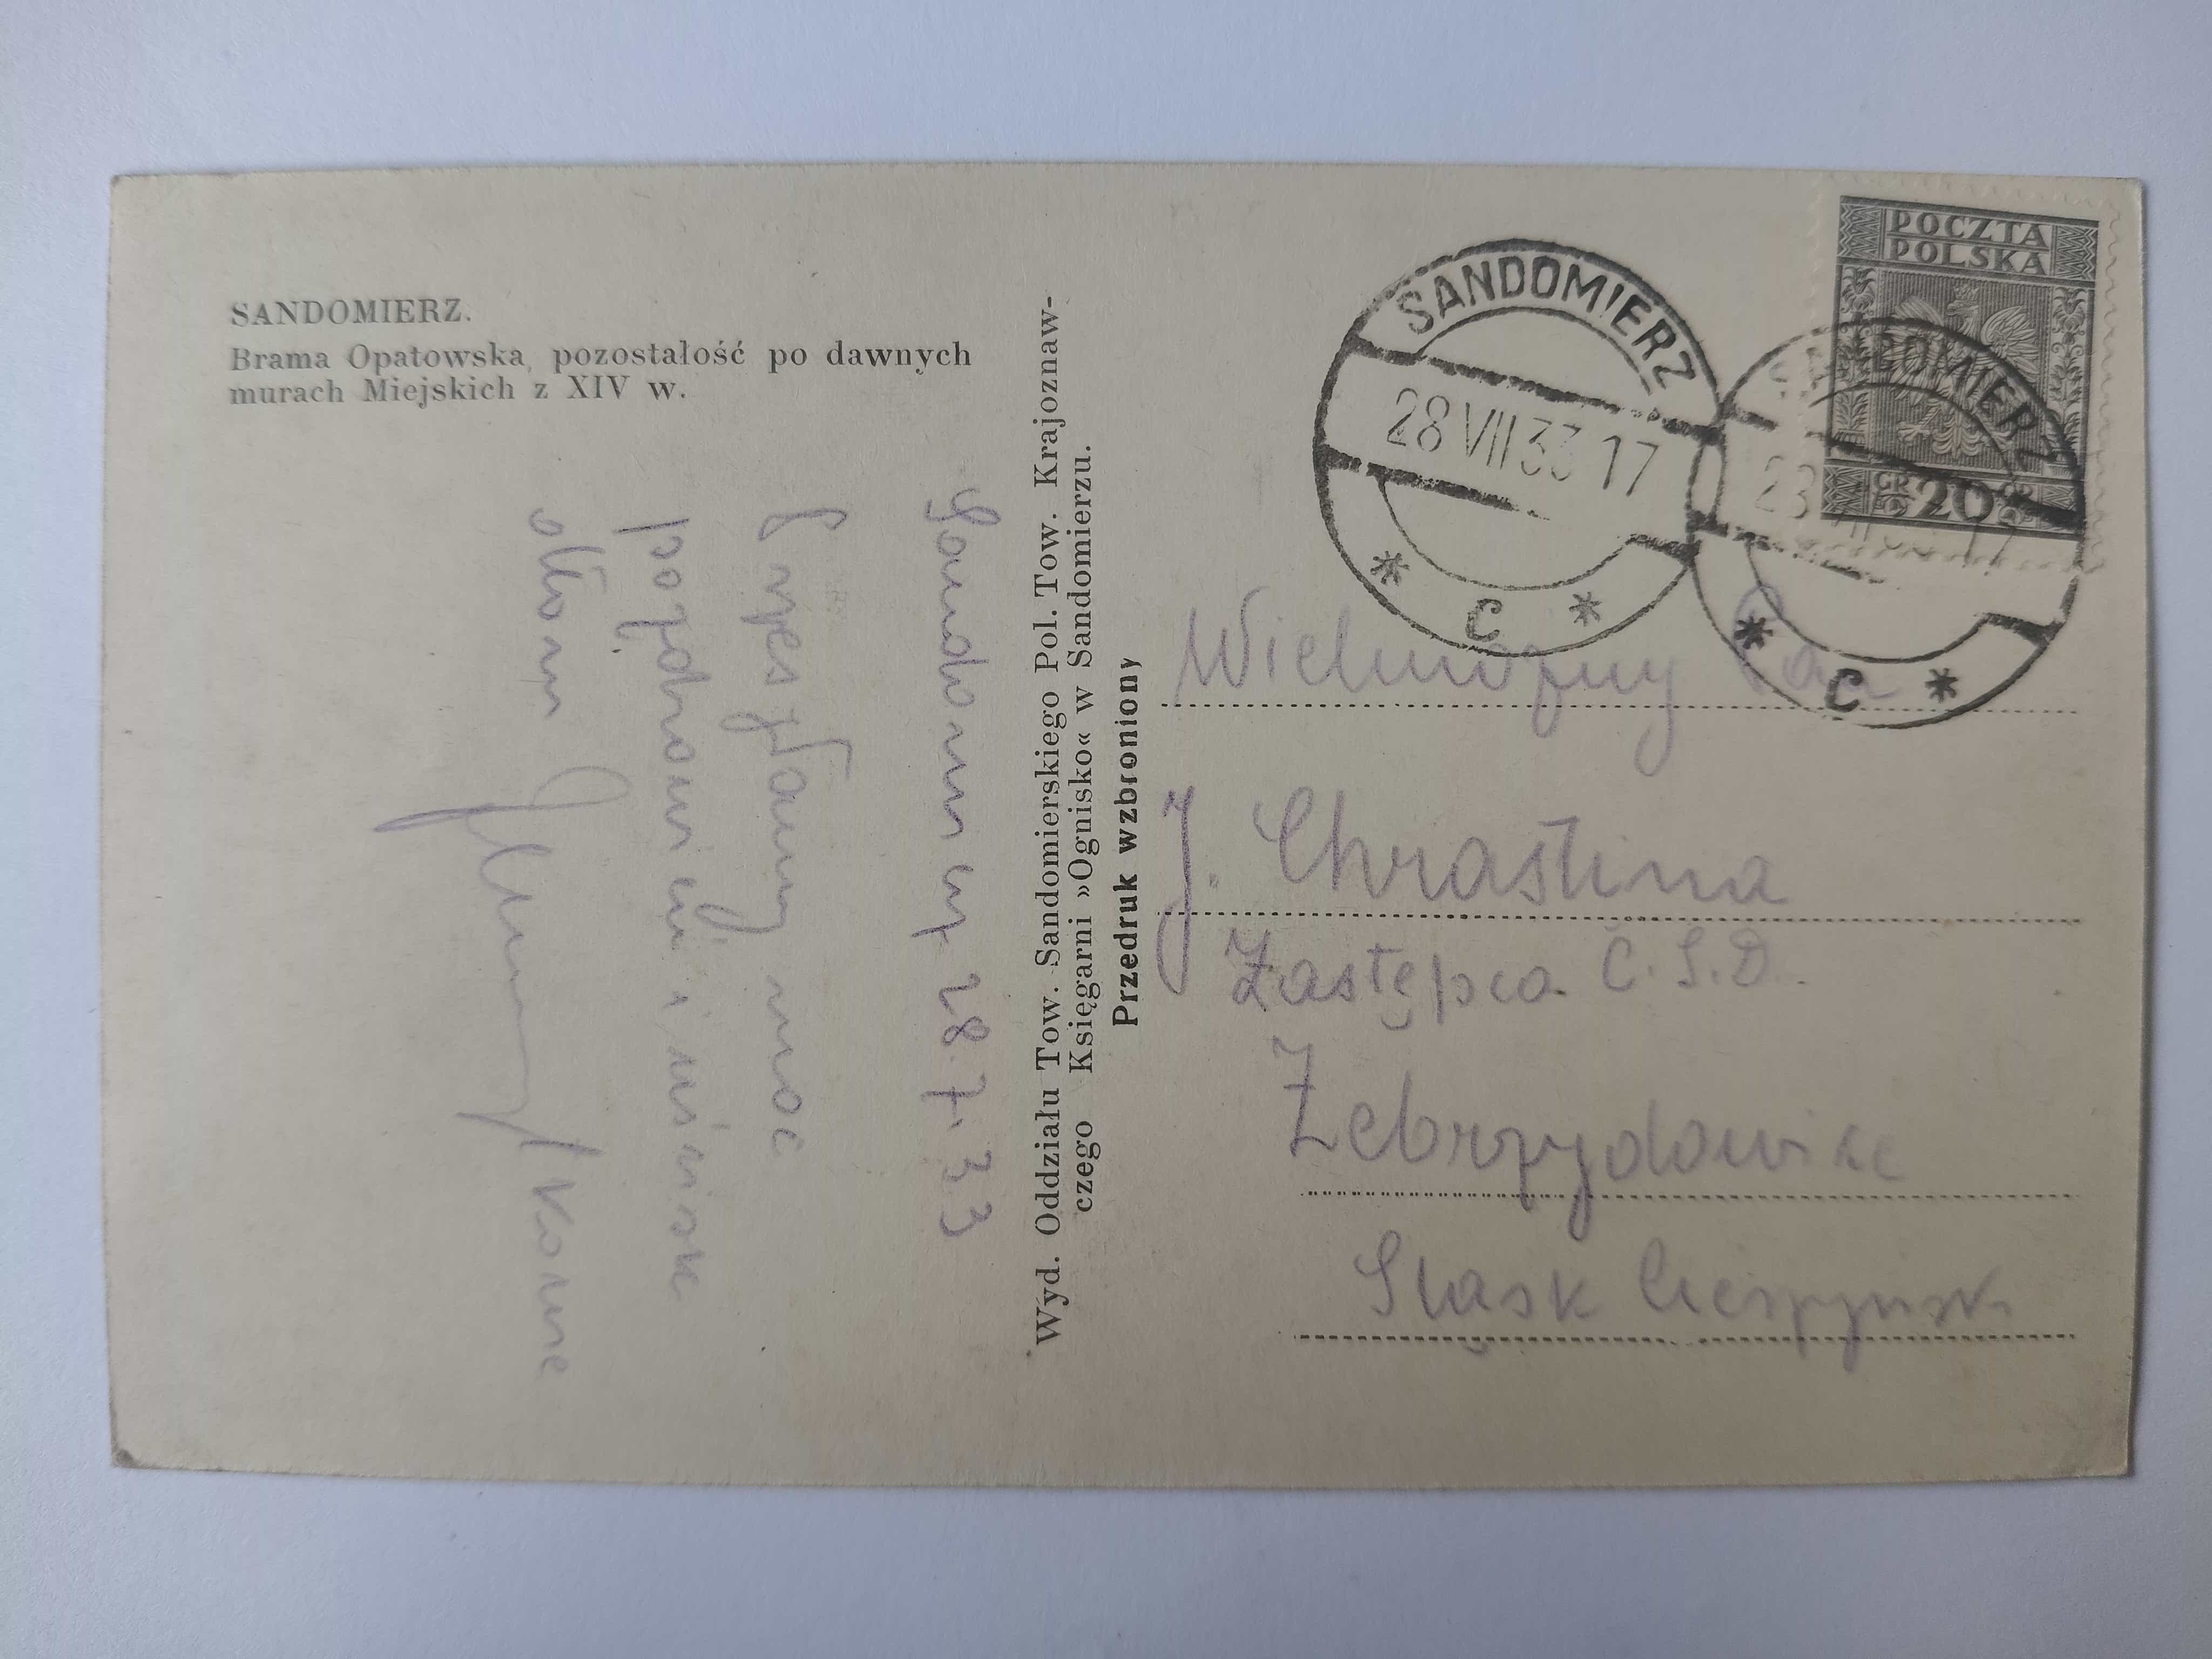 SANDOMIERZ.
Brama Opatowska, pozostałość po dawnych
murach Miejskich z XIV w.
28.7.33
moc
pozdrowień i
Wyd. Oddziału Tow. Sandomierskiego Pol. Tow. Krajoznaw-
czego Księgarni »Ognisko« w Sandomierzu.
Przedruk wzbroniony
POCZTA
POLSKA
GR 20 GR
SANDOMIERZ
28 VII 33 17
* C *
SANDOMIERZ
* C *
Wielmożny Pan
J. Chrastina
Zastępca Č.S.D.
Zebrzydowice
Śląsk Cieszyński